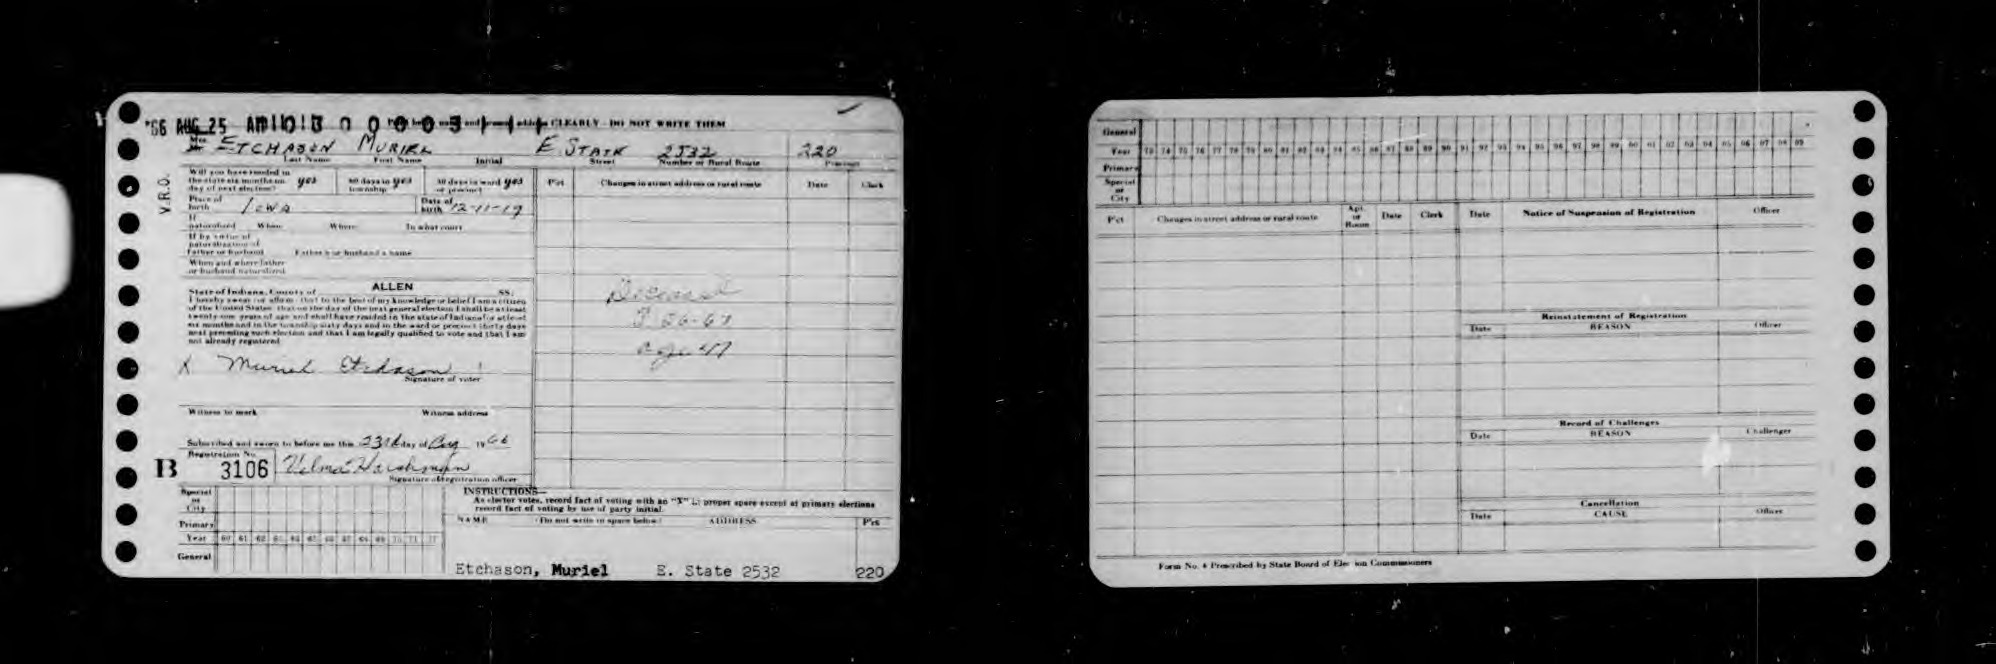 '66 AUG 25 AM 10 and address CLEARLY - DO NOT WRITE THEM
Mrs. ETCHASON MURIEL E STATE 2532 220
Last Name First Name Initial Street Number or Rural Route Precinct
V.R.O.
Will you have resided in the state six months on day of next election? yes 60 days in township yes 30 days in ward or precinct yes
Place of birth Iowa Date of birth 12-11-19
If naturalized When Where In what court
If by virtue of naturalization of Father or husband Father's or husband's name
When and where father or husband naturalized
State of Indiana, County of ALLEN SS:
I hereby swear (or affirm) that to the best of my knowledge or belief I am a citizen
of the United States; that on the day of the next general election I shall be at least
twenty-one years of age and shall have resided in the state of Indiana for at least
six months and in the township sixty days and in the ward or precinct thirty days
next preceding such election and that I am legally qualified to vote and that I am
not already registered
X Muriel Etchason
Signature of voter
Witness to mark Witness address
Subscribed and sworn to before me this 23rd day of Aug 1966
Registration No.
B 3106 Velma Harshman
Signature of registration officer
P'ct Changes in street address or rural route Date Clerk
Deceased
age 47
Special or City
Primary
Year 60 61 62 63 64 65 66 67 68 69 70 71 72
General
INSTRUCTIONS—
As elector votes, record fact of voting with an "X" in proper space except at primary elections
record fact of voting by use of party initial.
NAME (Do not write in space below) ADDRESS P'ct
Etchason, Muriel E. State 2532 220
General
Year 73 74 75 76 77 78 79 80 81 82 83 84 85 86 87 88 89 90 91 92 93 94 95 96 97 98 99 00 01 02 03 04 05 06 07 08 09
Primary
Special or City
P'ct Changes in street address or rural route Apt. or Room Date Clerk
Date Notice of Suspension of Registration Officer
Reinstatement of Registration
Date REASON Officer
Record of Challenges
Date REASON Challenger
Cancellation
Date CAUSE Officer
Form No. 4 Prescribed by State Board of Election Commissioners